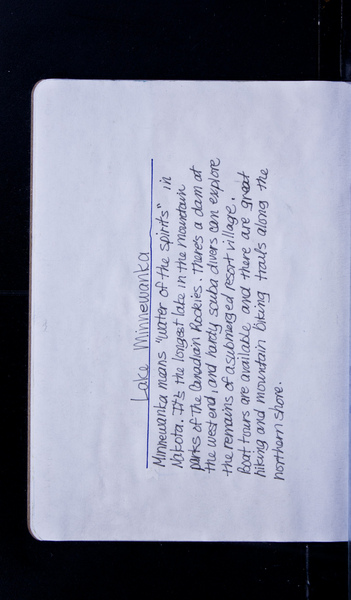 Lake Minnewanka
Minnewanka means "water of the spirits" in
Nakota. It's the longest lake in the mountain
parks of The Canadian Rockies. There's a dam at
the west end, and hardy scuba divers can explore
the remains of a submerged resort village.
Boat tours are available and there are great
hiking and mountain biking trails along the
northern shore.